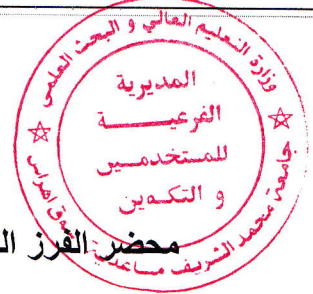 وزارة التعليم العالي و البحث العلمي
المديرية
الفرعيـــــة
للمستخدمـين
و التكـوين
جامعة محمد الشريف مساعدية سوق اهراس
محضر الفرز ال